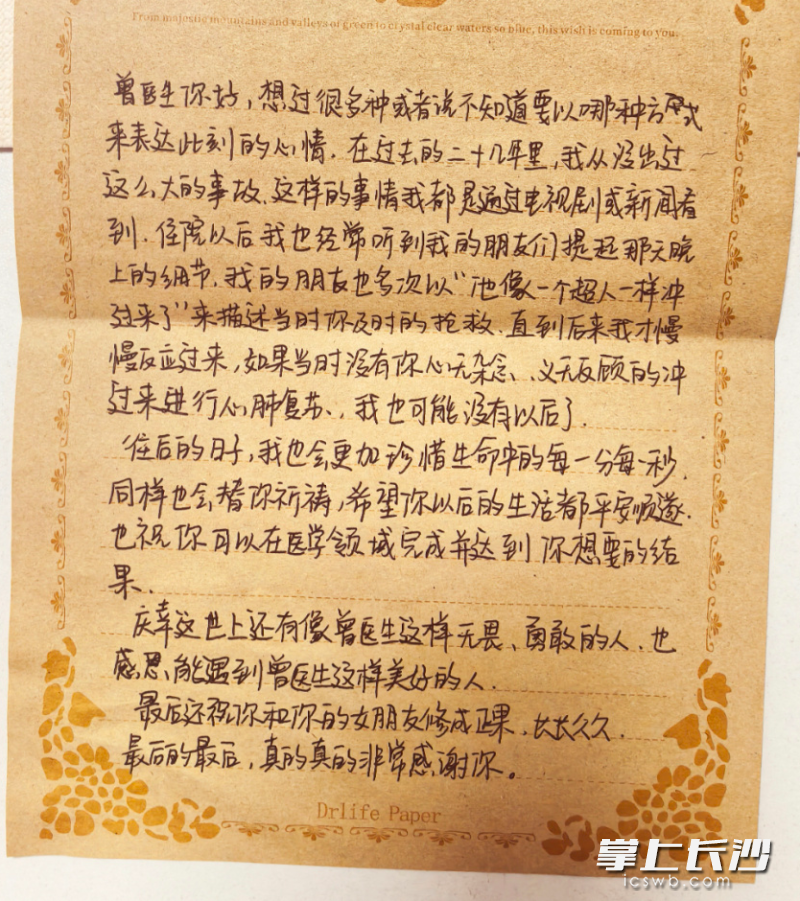 From majestic mountains and valleys of green to crystal clear waters so blue, this wish is coming to you.
曾医生你好,想过很多种或者说不知道要以哪种方式
来表达此刻的心情.在过去的二十几年里,我从没出过
这么大的事故.这样的事情我都是通过电视剧或新闻看
到.住院以后我也经常听到我的朋友们提起那天晚
上的细节.我的朋友也多次以“他像一个超人一样冲
过来了”来描述当时你及时的抢救.直到后来我才慢
慢反应过来,如果当时没有你心无杂念、义无反顾的冲
过来进行心肺复苏、,我也可能没有以后了.
往后的日子,我也会更加珍惜生命中的每一分每一秒.
同样也会替你祈祷,希望你以后的生活都平安顺遂.
也祝你可以在医学领域完成并达到你想要的结
果.
庆幸这世上还有像曾医生这样无畏、勇敢的人.也
感恩能遇到曾医生这样美好的人.
最后还祝你和你的女朋友修成正果.长长久久.
最后的最后,真的真的非常感谢你。
Drlife Paper
掌上长沙
icswb.com